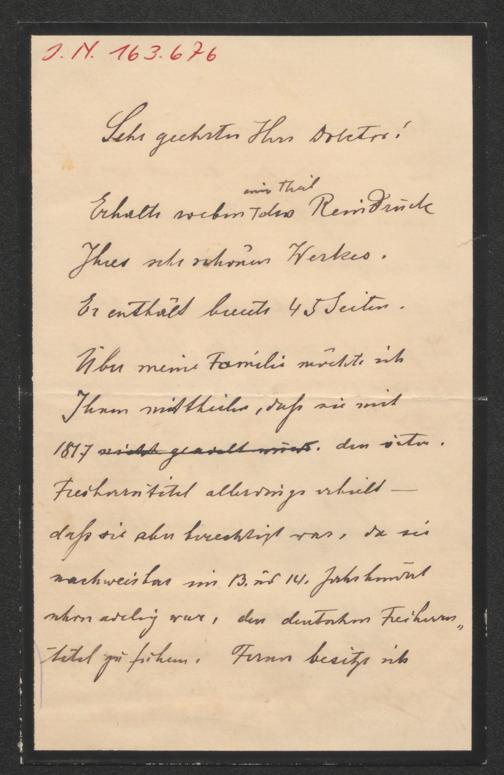 J. N. 163.676
Sehr geehrter Herr Doktor!
einen Theil
Erhalte soeben des Reindruck
Ihres sehr schönen Werkes.
Er enthält bereits 45 Seiten.
Über meine Familie möchte ich
Ihnen mittheilen, daß sie mit
1817 nicht geadelt wurde. den öster.
Freiherrntitel allerdings erhielt —
daß sie aber berechtigt war, da sie
nachweisbar im 13. und 14. Jahrhundert
schon adelig war, den deutschen Freiherrn-
titel zu führen. Ferner besitze ich